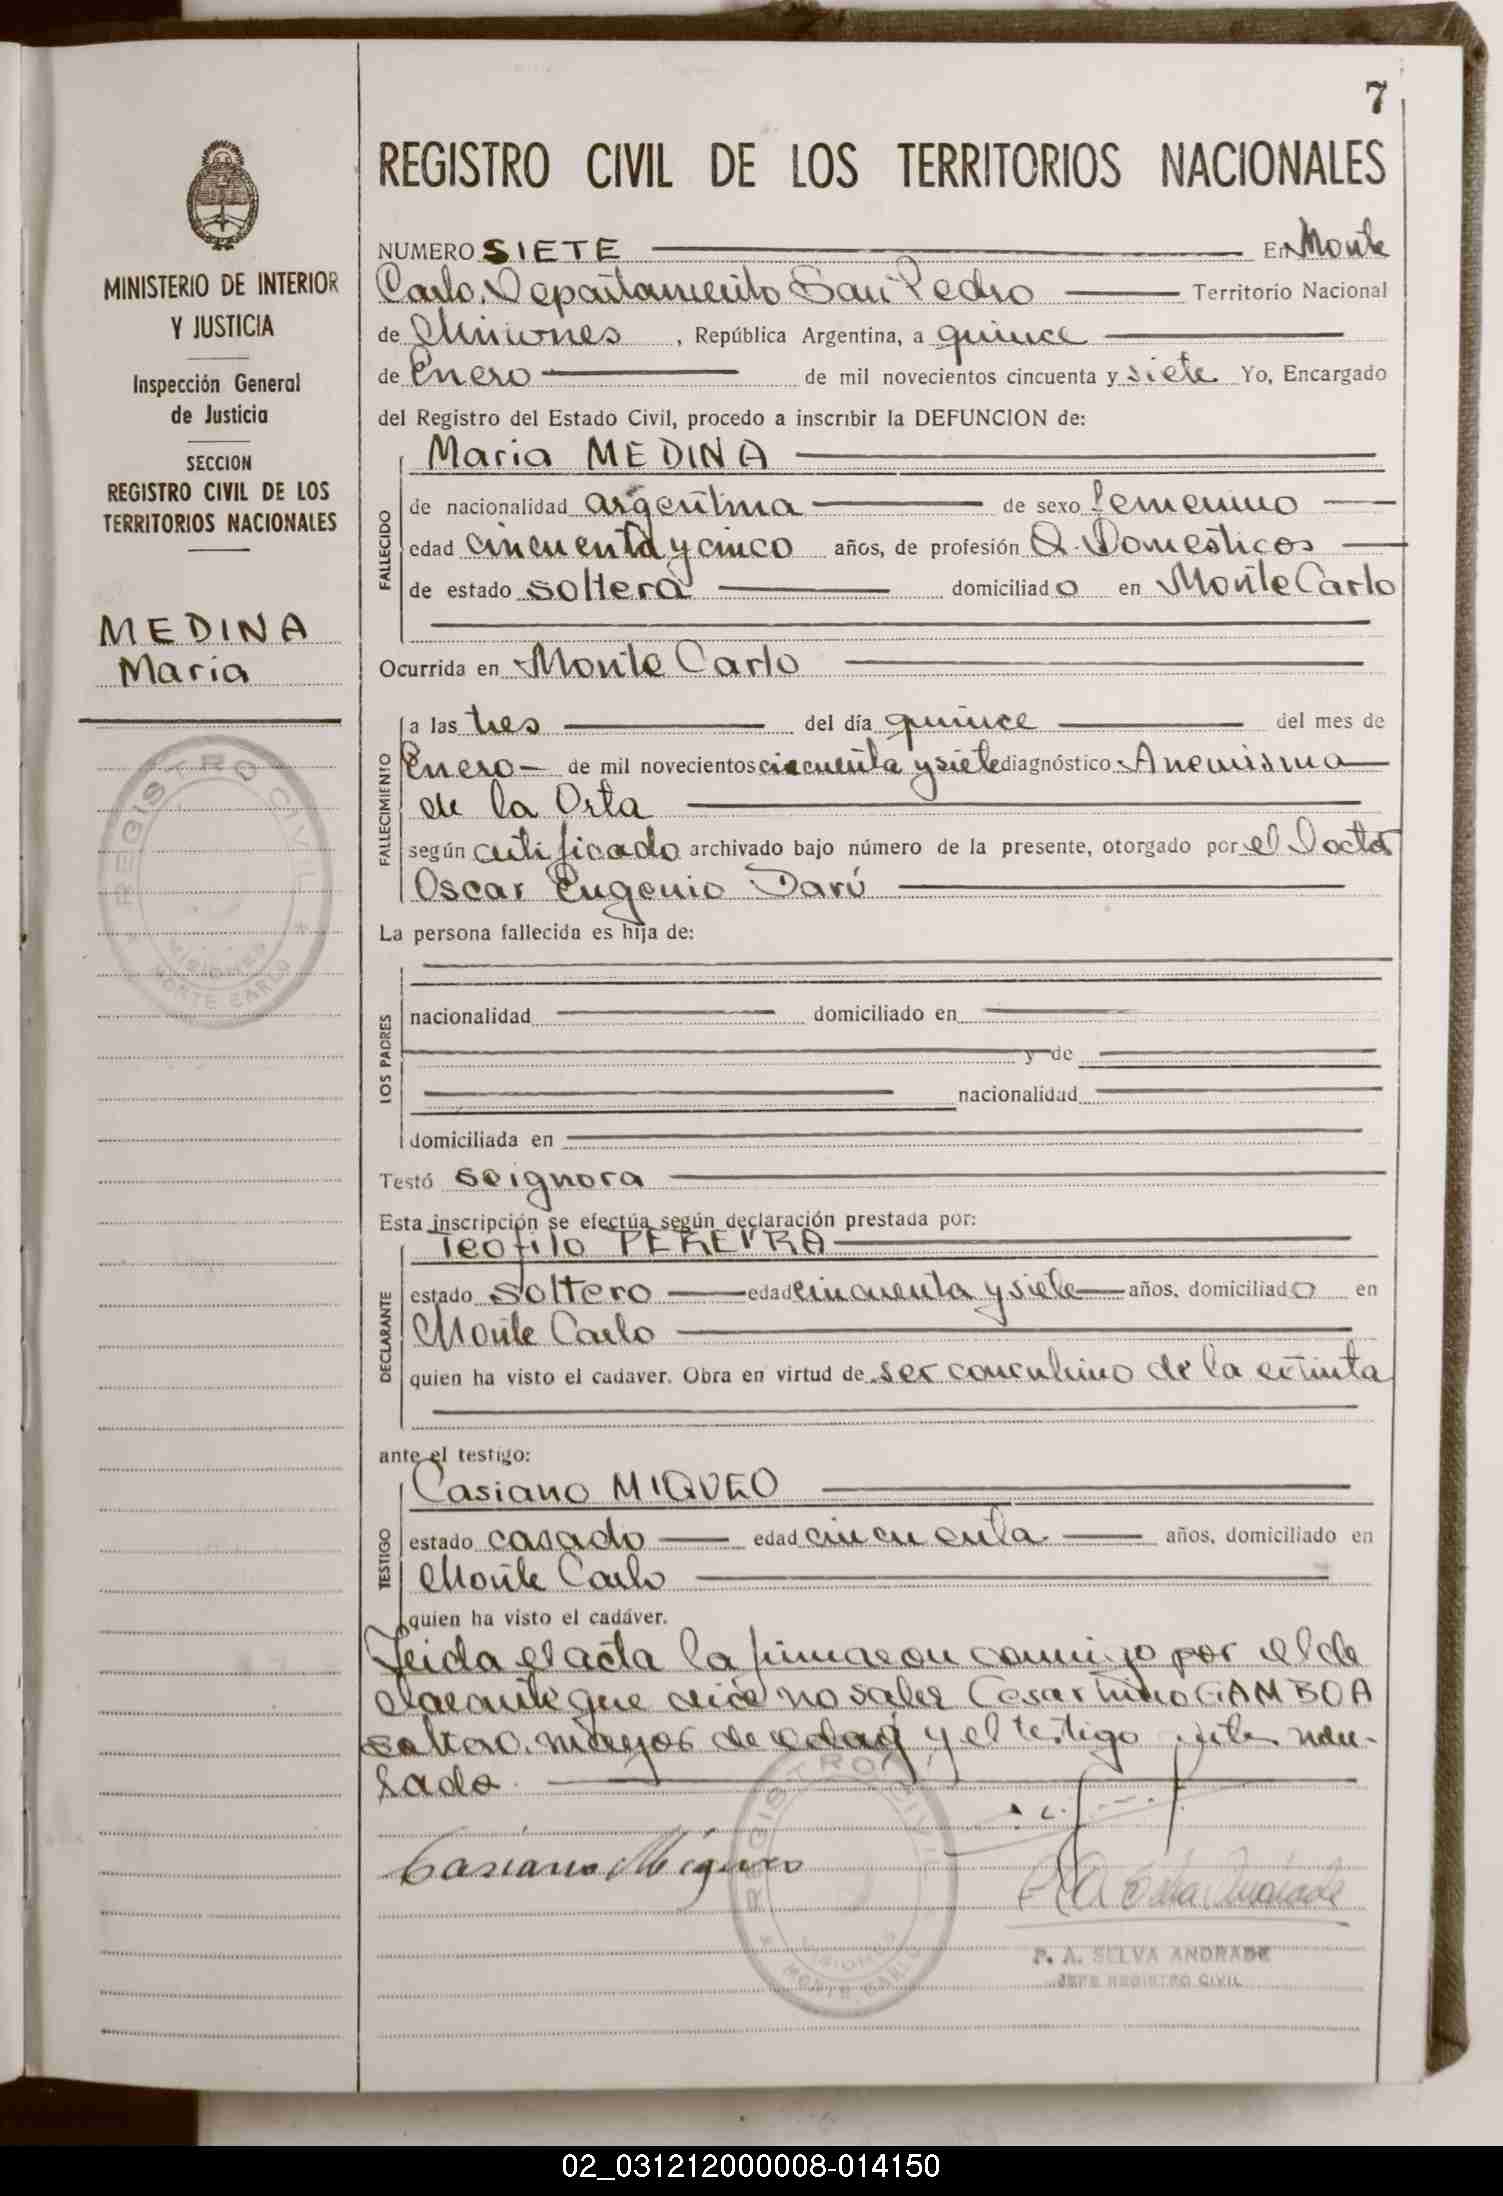 7
REGISTRO CIVIL DE LOS TERRITORIOS NACIONALES
MINISTERIO DE INTERIOR
Y JUSTICIA
Inspección General
de Justicia
SECCION
REGISTRO CIVIL DE LOS
TERRITORIOS NACIONALES
MEDINA
Maria
REGISTRO CIVIL
MISIONES
MONTE CARLO
NUMERO SIETE En Monte
Carlo, Departamento San Pedro Territorio Nacional
de Misiones, República Argentina, a quince
de Enero de mil novecientos cincuenta y siete Yo, Encargado
del Registro del Estado Civil, procedo a inscribir la DEFUNCION de:
Maria MEDINA
FALLECIDO
de nacionalidad argentina de sexo femenino
edad cincuenta y cinco años, de profesión Q. Domesticos
de estado soltera domiciliado en Monte Carlo
Ocurrida en Monte Carlo
FALLECIMIENTO
a las tres del día quince del mes de
Enero de mil novecientos cincuenta y siete diagnóstico Aneurisma
de la Orta
según certificado archivado bajo número de la presente, otorgado por el Doctor
Oscar Eugenio Darú
La persona fallecida es hija de:
LOS PADRES
nacionalidad domiciliado en
y de
nacionalidad
domiciliada en
Testó se ignora
Esta inscripción se efectúa según declaración prestada por:
Teofilo PEREYRA
DECLARANTE
estado soltero edad cincuenta y siete años, domiciliado en
Monte Carlo
quien ha visto el cadaver. Obra en virtud de ser concubino de la extinta
ante el testigo:
Casiano MIQUEO
TESTIGO
estado casado edad cincuenta años, domiciliado en
Monte Carlo
quien ha visto el cadáver.
Leida el acta la firmaron conmigo por el de
clarante que dice no saber Cesar GAMBOA
soltero, mayor de edad y el testigo
Casiano Miqueo
REGISTRO CIVIL
MISIONES
MONTE CARLO
P. A. SELVA ANDRADE
JEFE REGISTRO CIVIL
02_031212000008-014150